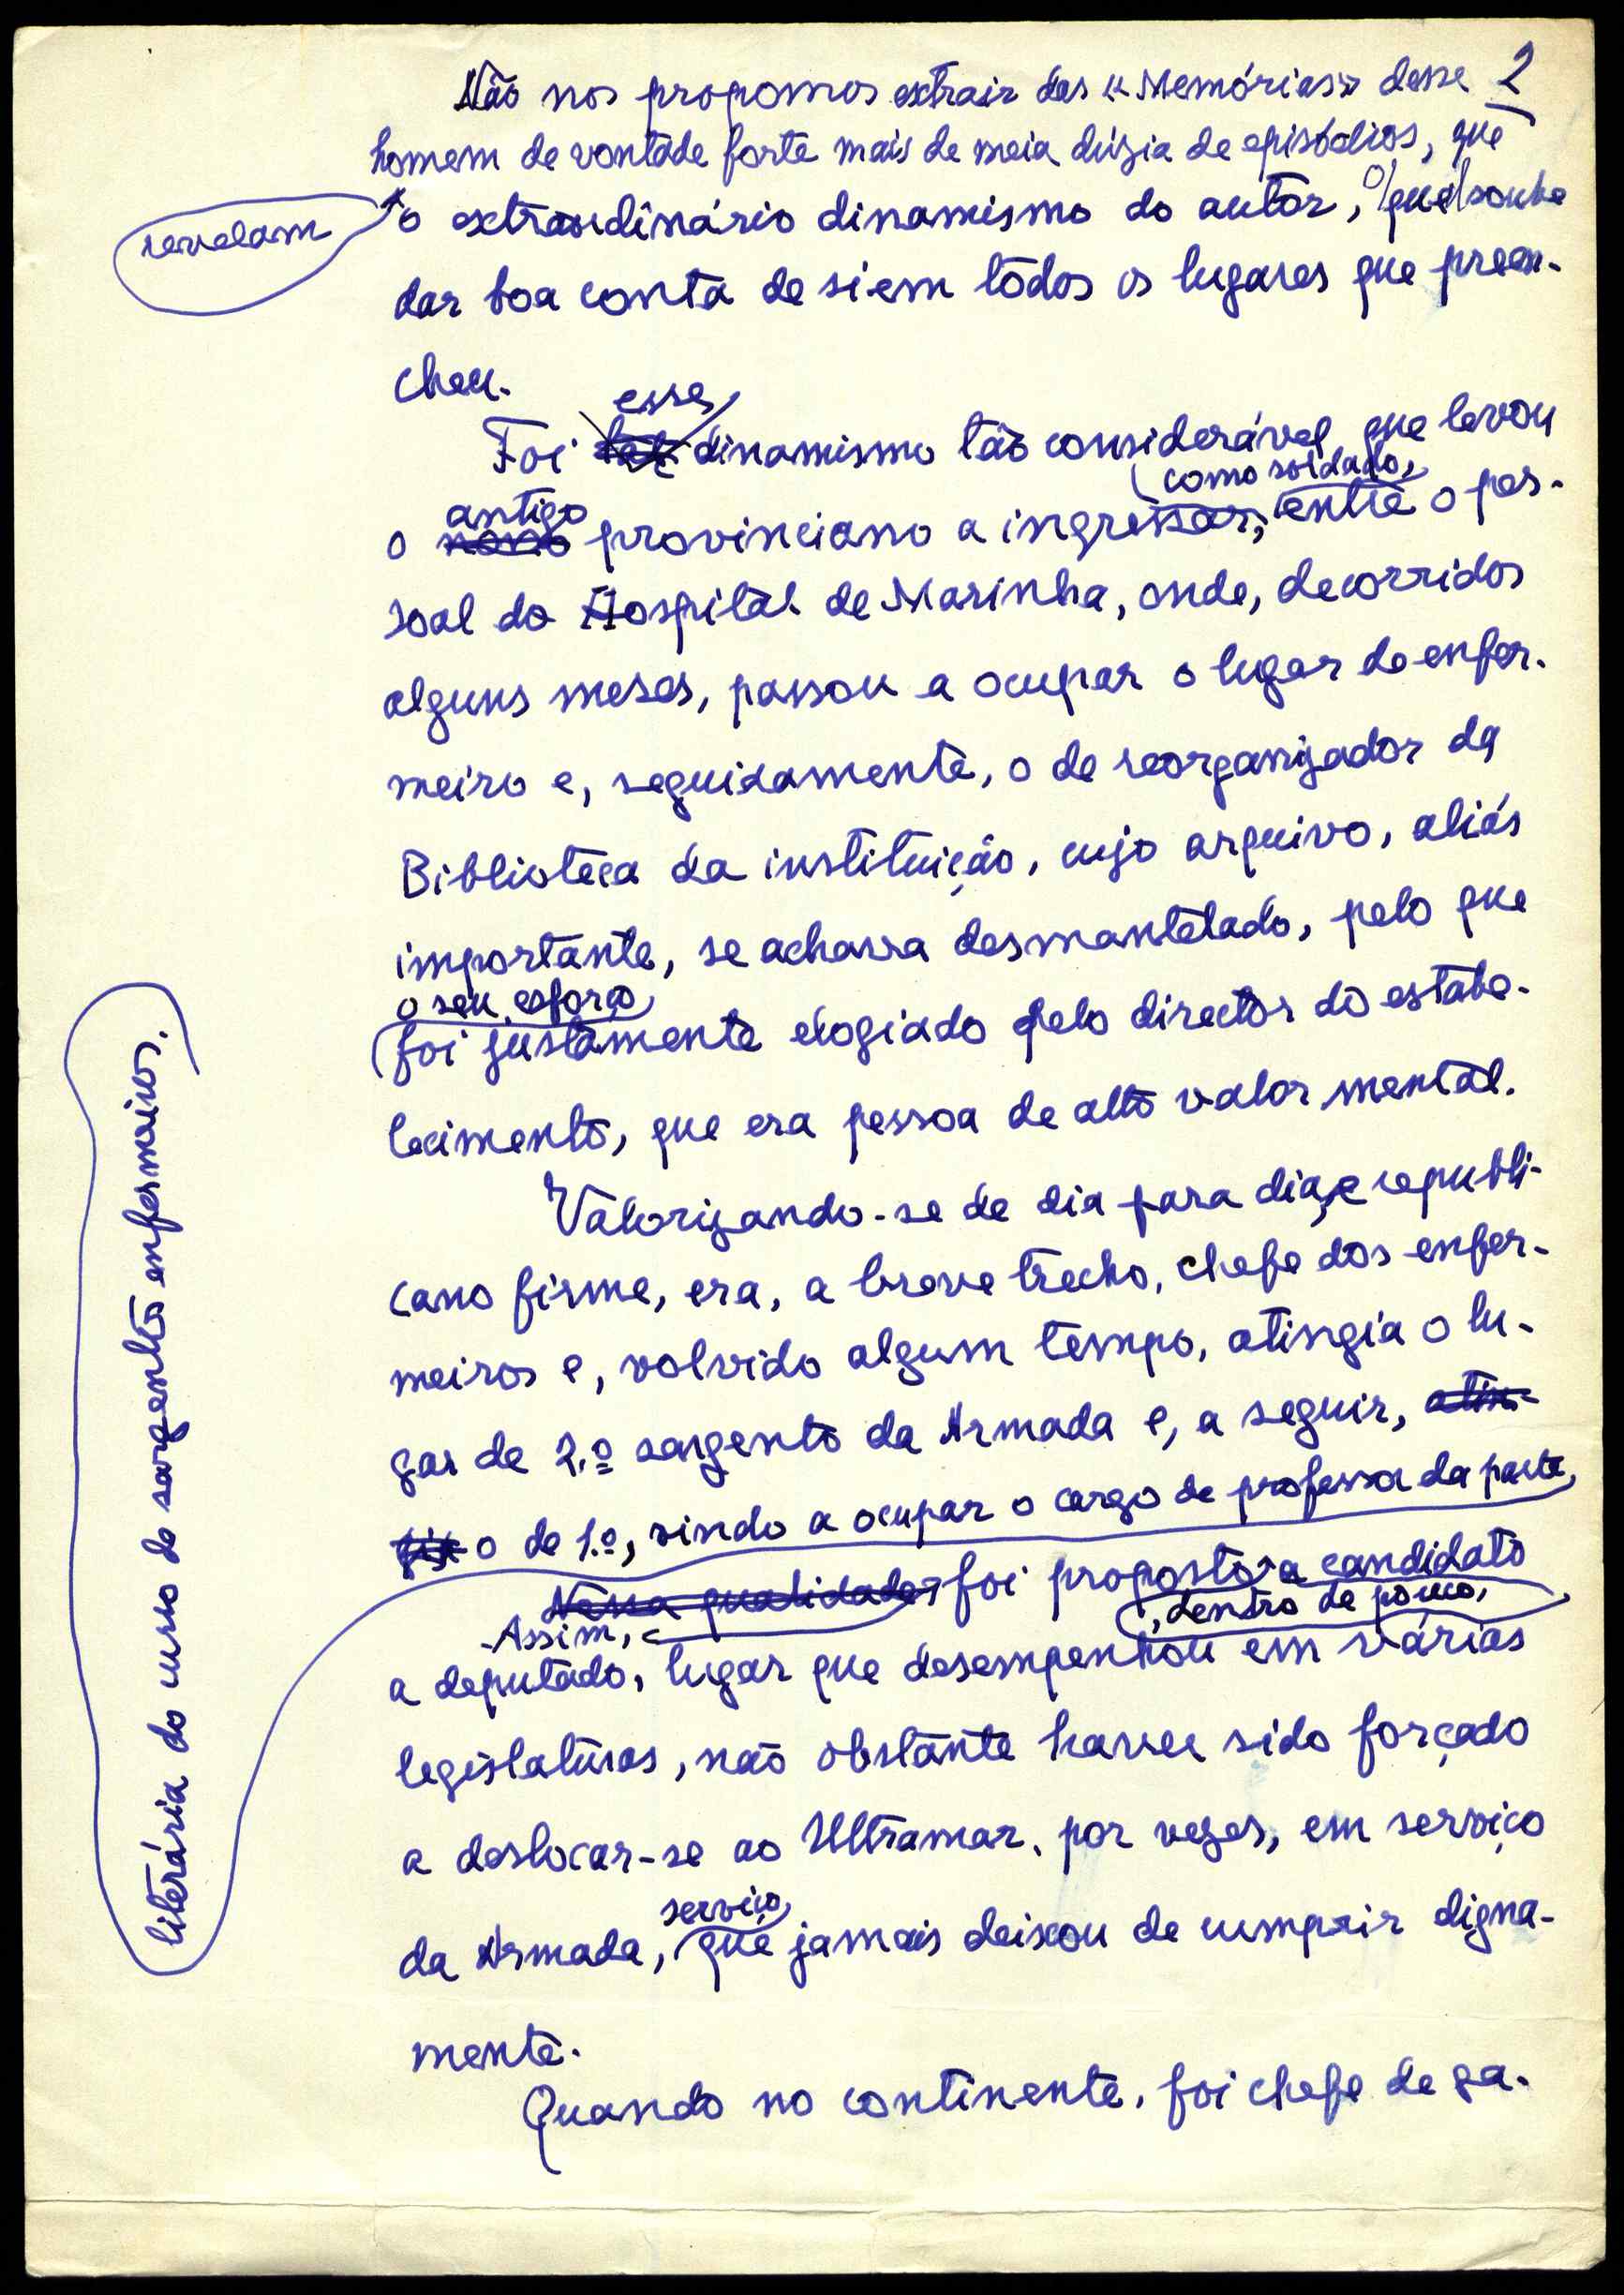 2
Não nos propomos extrair das «Memórias» desse
homem de vontade forte mais de meia dúzia de episódios, que
revelam
o extraordinário dinamismo do autor, o qual soube
dar boa conta de si em todos os lugares que preen-
cheu.
esse
Foi tal dinamismo tão considerável que levou
como soldado,
antigo
o novo provinciano a ingressar, entre o pes-
soal do Hospital de Marinha, onde, decorridos
alguns meses, passou a ocupar o lugar de enfer-
meiro e, seguidamente, o de reorganizador da
Biblioteca da instituição, cujo arquivo, aliás
importante, se achava desmantelado, pelo que
o seu esforço
foi justamente elogiado pelo director do estabe-
lecimento, que era pessoa de alto valor mental.
Valorizando-se de dia para dia, e republi-
cano firme, era, a breve trecho, chefe dos enfer-
meiros e, volvido algum tempo, atingia o lu-
gar de 2.º sargento da Armada e, a seguir, atin-
gia o de 1.º, vindo a ocupar o cargo de professor da parte
literária do curso de sargento enfermeiro.
Nessa qualidade, foi proposto a candidato
Assim,
, dentro de pouco,
a deputado, lugar que desempenhou em várias
legislaturas, não obstante haver sido forçado
a deslocar-se ao Ultramar, por vezes, em serviço
serviço
da Armada, que jamais deixou de cumprir digna-
mente.
Quando no continente, foi chefe de ga-